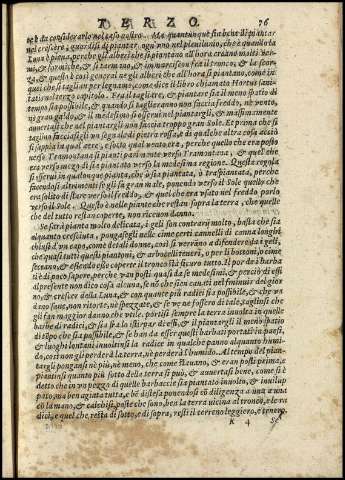 TERZO. 76
ne è da considerarlo nel caso nostro. Ma quantunque sia bene il piantar
nel crescere, guardisi di piantar ogni uno nel plenilunio, che è quando la
Luna è piena, perche gli alberi che si piantano all'hora creano molti ver-
mi, & formiche, & si tarmano, & immarciscon fra il tronco, & la scor-
za, & questo è così general ne gli alberi che all'hora si piantano, come in
quei che si taglian per legname, come dice il libro chiamato Hortus sani-
tatis nel terzo capitolo. Fra il tagliare, & piantare sia il meno spatio di
tempo sia possibile, & quando si taglieranno non faccia freddo, nè vento,
ni gran caldo, & il medesimo si osservi nel piantargli, & massimamente
avvertasi che nel piantargli non faccia troppo gran Sole. Et prima che si
taglino facciasigli un segnale di pietra rossa, ò di qualche altra cosa acciò
si sappia in qual aere, e sotto qual vento era, perche quello che era posto
verso Tramontana si pianti parimente verso Tramontana, & quello che
era verso mezo dì sia posto verso la medesima regione. Questa regola
si osservi in qualunque pianta, che ò sia piantata, ò traspiantata, perche
facendosi altrimenti se gli fa gran male, ponendo verso il Sole quello che
era solito di stare verso il freddo, & quel che era usato nel freddo porlo
verso il Sole. Questo è nelle piante che restan sopra la terra, che quelle
che del tutto restan coperte, non ricevon danno.
Se sarà pianta molto delicata, i geli son contrarij molto, basta che sia
alquanto cresciuta, pongasegli nelle cime certi cannelli di canna longhi
chiusi da un capo, come detali donne, così si verranno a difendere da i geli,
che quasi tutti questi piantoni, & arboscelli teneri, o per li bottoni, ò cime
seccano, & essendo esse coperte il tronco stà sicuro tutto. Il por de i barba
ti è di poco sapere, perche van posti quasi da se medesimi, & perciò di essi
al presente non dico cosa alcuna, se nò che sien cavati nel sminuir del gior
no, & crescer della Luna, & con quante più radici sia possibile, & che va
da no sane, non ritorte, nè spezzate, & se ve ne fossero di tale, taglinsi che
gli fan maggior danno che utile. portisi sempre la terra involta in quelle
barbe di radici, & sia fra lo stirpar di essi, & il piantargli il meno spatio
di tẽpo che sia possibile, & se han da esser questi barbati portati in paesi,
& luoghi lontani involtinsi la radici in qualche panno alquanto humi-
do, così non gli perderà la terra, nè perderà l'humido. Al tempo del pian-
targli pongansi nè più, nè meno, che come stavano, & eran posti prima, e
piantinsi quanto più sotto della terra si può, & avvertasi bene, come si è
detto che in un pezzo di quelle barbaccie sia piantato involto, & invilup
pato, ma ben agiata tutta, & distesa più tosto ponendosi cõ diligenza a una a una
cõ la mano, & calchisi, poste che sono, ben la terra vicina al tronco, & le ra
dici, e quel che resta di sotto, e di sopra, resti il terreno leggiero, e tenero.
K 4 Se